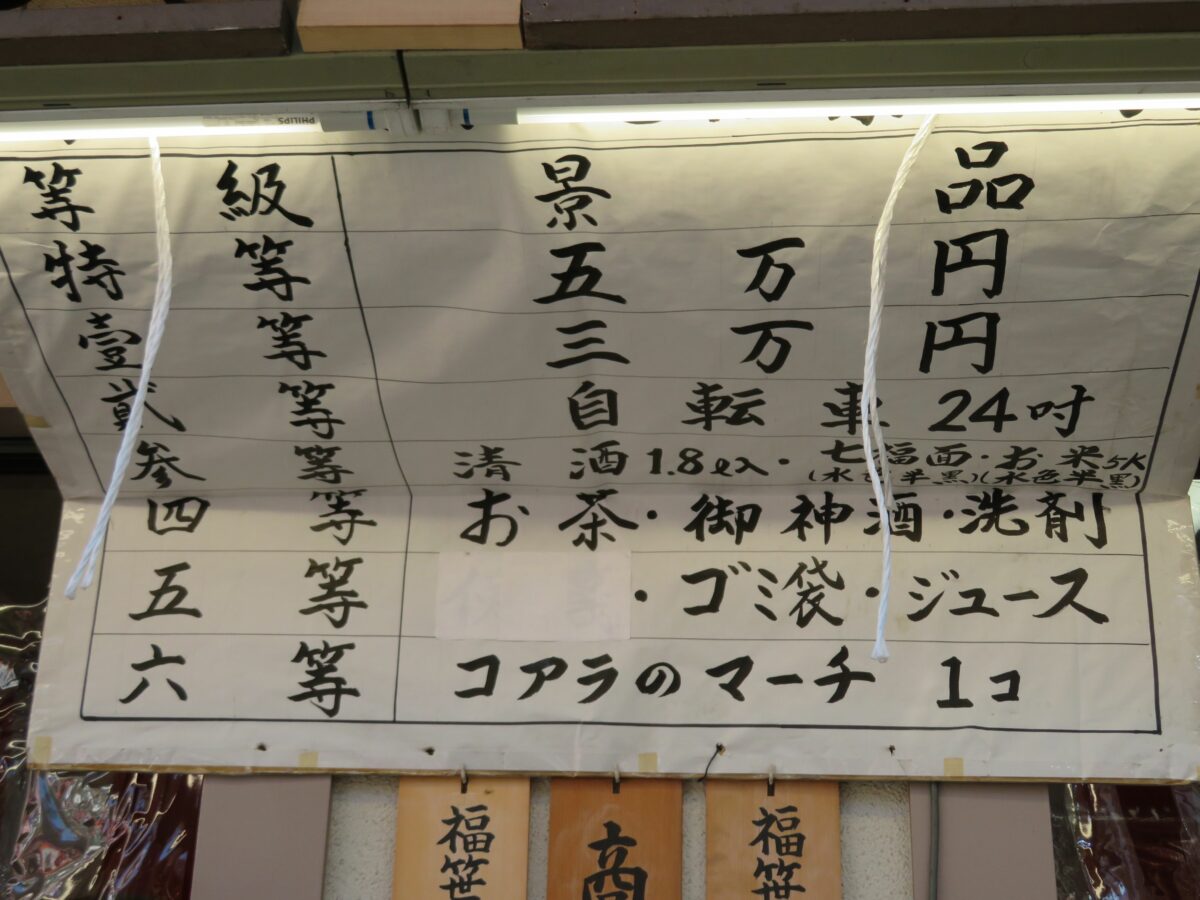 PHILIPS
等級 景品
特等 五万円
壹等 三万円
貮等 自転車 24吋
参等 清酒1.8ℓ入・七福面・お米5K
(水色半黒)(水色半黒)
四等 お茶・御神酒・洗剤
五等 ・ゴミ袋・ジュース
六等 コアラのマーチ 1コ
福笹
商
福笹